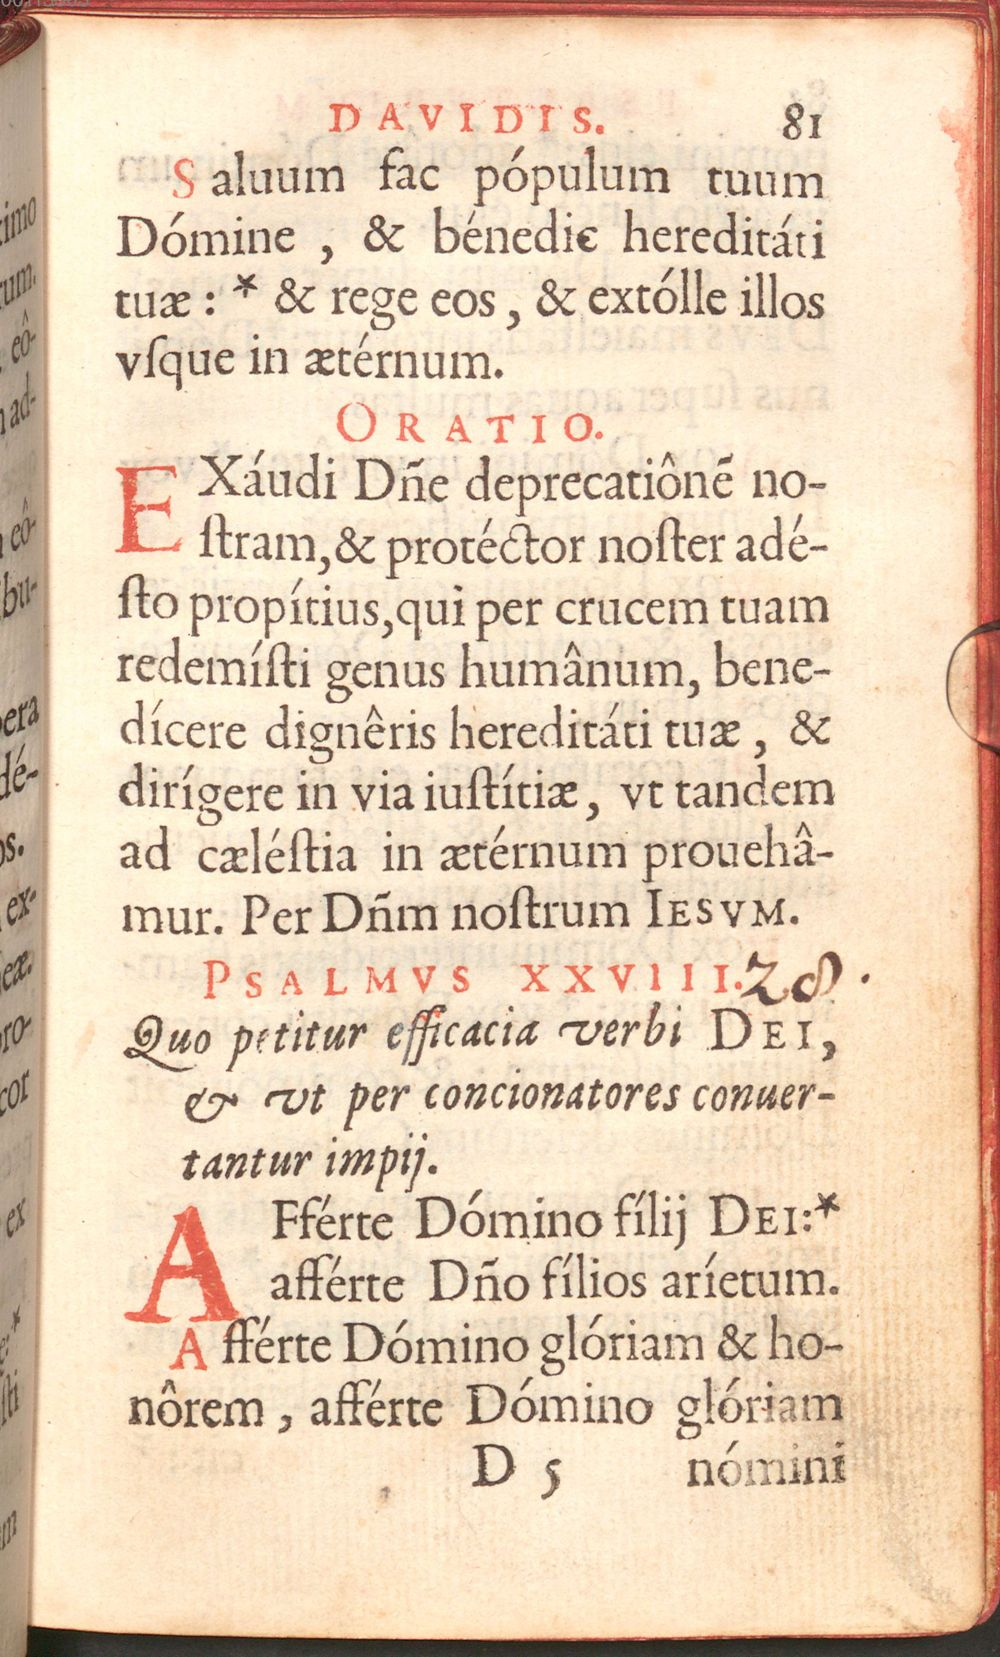 DAVIDIS. 81
Saluum fac pópulum tuum
Dómine , & bénedic hereditáti
tuæ : * & rege eos , & extólle illos
vſque in ætérnum.
ORATIO.
EXáudi Dñe deprecatiônē no-
ſtram,& protéctor noſter adé-
ſto propítius,qui per crucem tuam
redemíſti genus humânum, bene-
dícere dignêris hereditáti tuæ , &
dirígere in via iuſtítiæ, vt tandem
ad cæléſtia in ætérnum prouehâ-
mur. Per Dñm noſtrum IESVM.
PSALMVS XXVIII. 28.
Quo petitur efficacia verbi DEI,
& vt per concionatores conuer-
tantur impij.
AFférte Dómino fílij DEI:*
afférte Dño fílios aríetum.
Afférte Dómino glóriam & ho-
nôrem , afférte Dómino glóriam
D 5 nómini